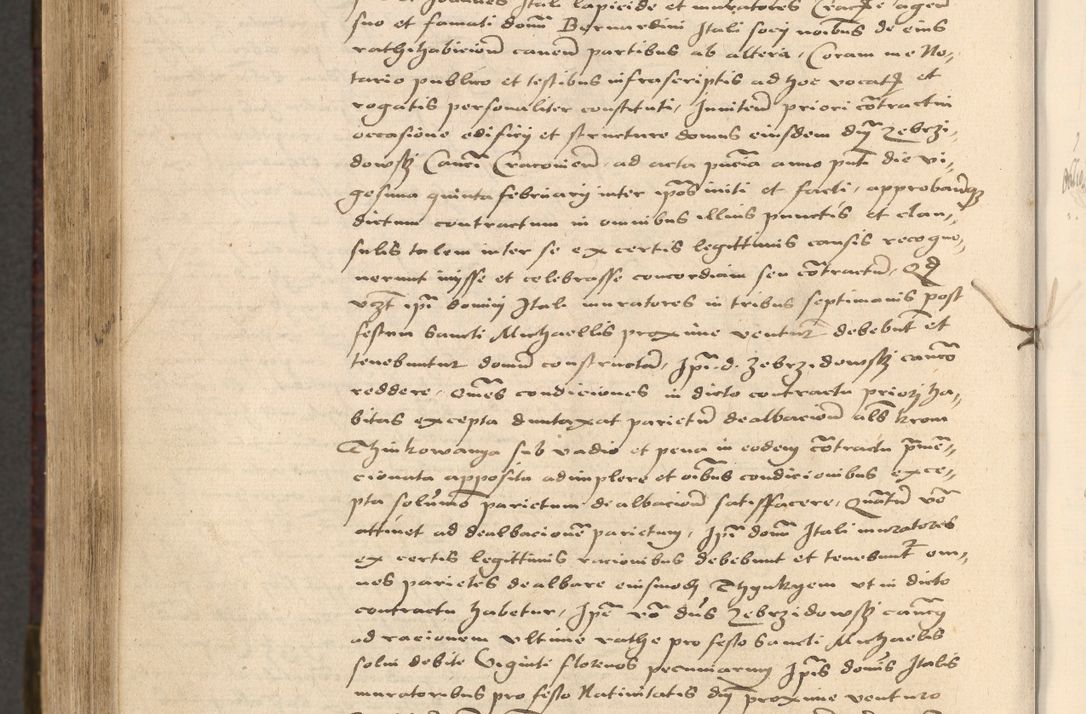 et Joannes Itali lapicide et muratores Crac̃e agen̄
suo et famati domī Bernardini Itali socy noībus de eius
rathihabicioñ caueñ partibus ab altera, Coram me No-
tario publico et testibus infrascriptis ad hoc vocatꝭ et
rogatis personaliter constituti, Initeñ priori cõtractui
occasione edificÿ et structure domus eiusdem dñi Zebrzi-
dowskj Canci Cracovieñ, ad acta pñcia anno pñti die vi-
gesima quinta februarÿ inter ip̃os initi et facti, approbandoqꝫ
dictum contractum in omnibus illius punctis et clau-
sulis talem inter se ex certis legittimis causis recogno-
uerunt inÿsse et celebrasse concordiam seu cõtractũ, Qđ
vzt ip̃i domini Itali muratores in tribus septimanis post
festum Sancti Michaellis proxime ventur debebũt et
tenebuntur domũ constructã, Ip̃i d. Zebrzidowskj canco
reddere, Om̃es condiciones in dicto contractu priori ha-
bitas excepta duntaxat parietũ dealbacioñ als krom
Thinkowanya sub vadio et pena in eodem cõtractu p̃men-
cionata apposita adimplere et oĩbus condicionibus exce-
pta solũmo parietum dealbacioñ satisffacere, Quãtũ vō
attinet ad dealbacionẽ parietum, Ip̃i domĩ Itali muratores
ex certis legittimis racionibus debebunt et tenebunt om-
nes parietes dealbare eiusmodj Thynkyem vt in dicto
contractu habetur, Ip̃e vō dñs Zebrzidowskj cancꝫ
ad racionem vltime rathe pro festo Sancti Michaelis
solui debite Viginti florenos pecuniarum Ip̃is domĩs Italis
muratoribus pro festo Natiuitatis dñj proxime venturo